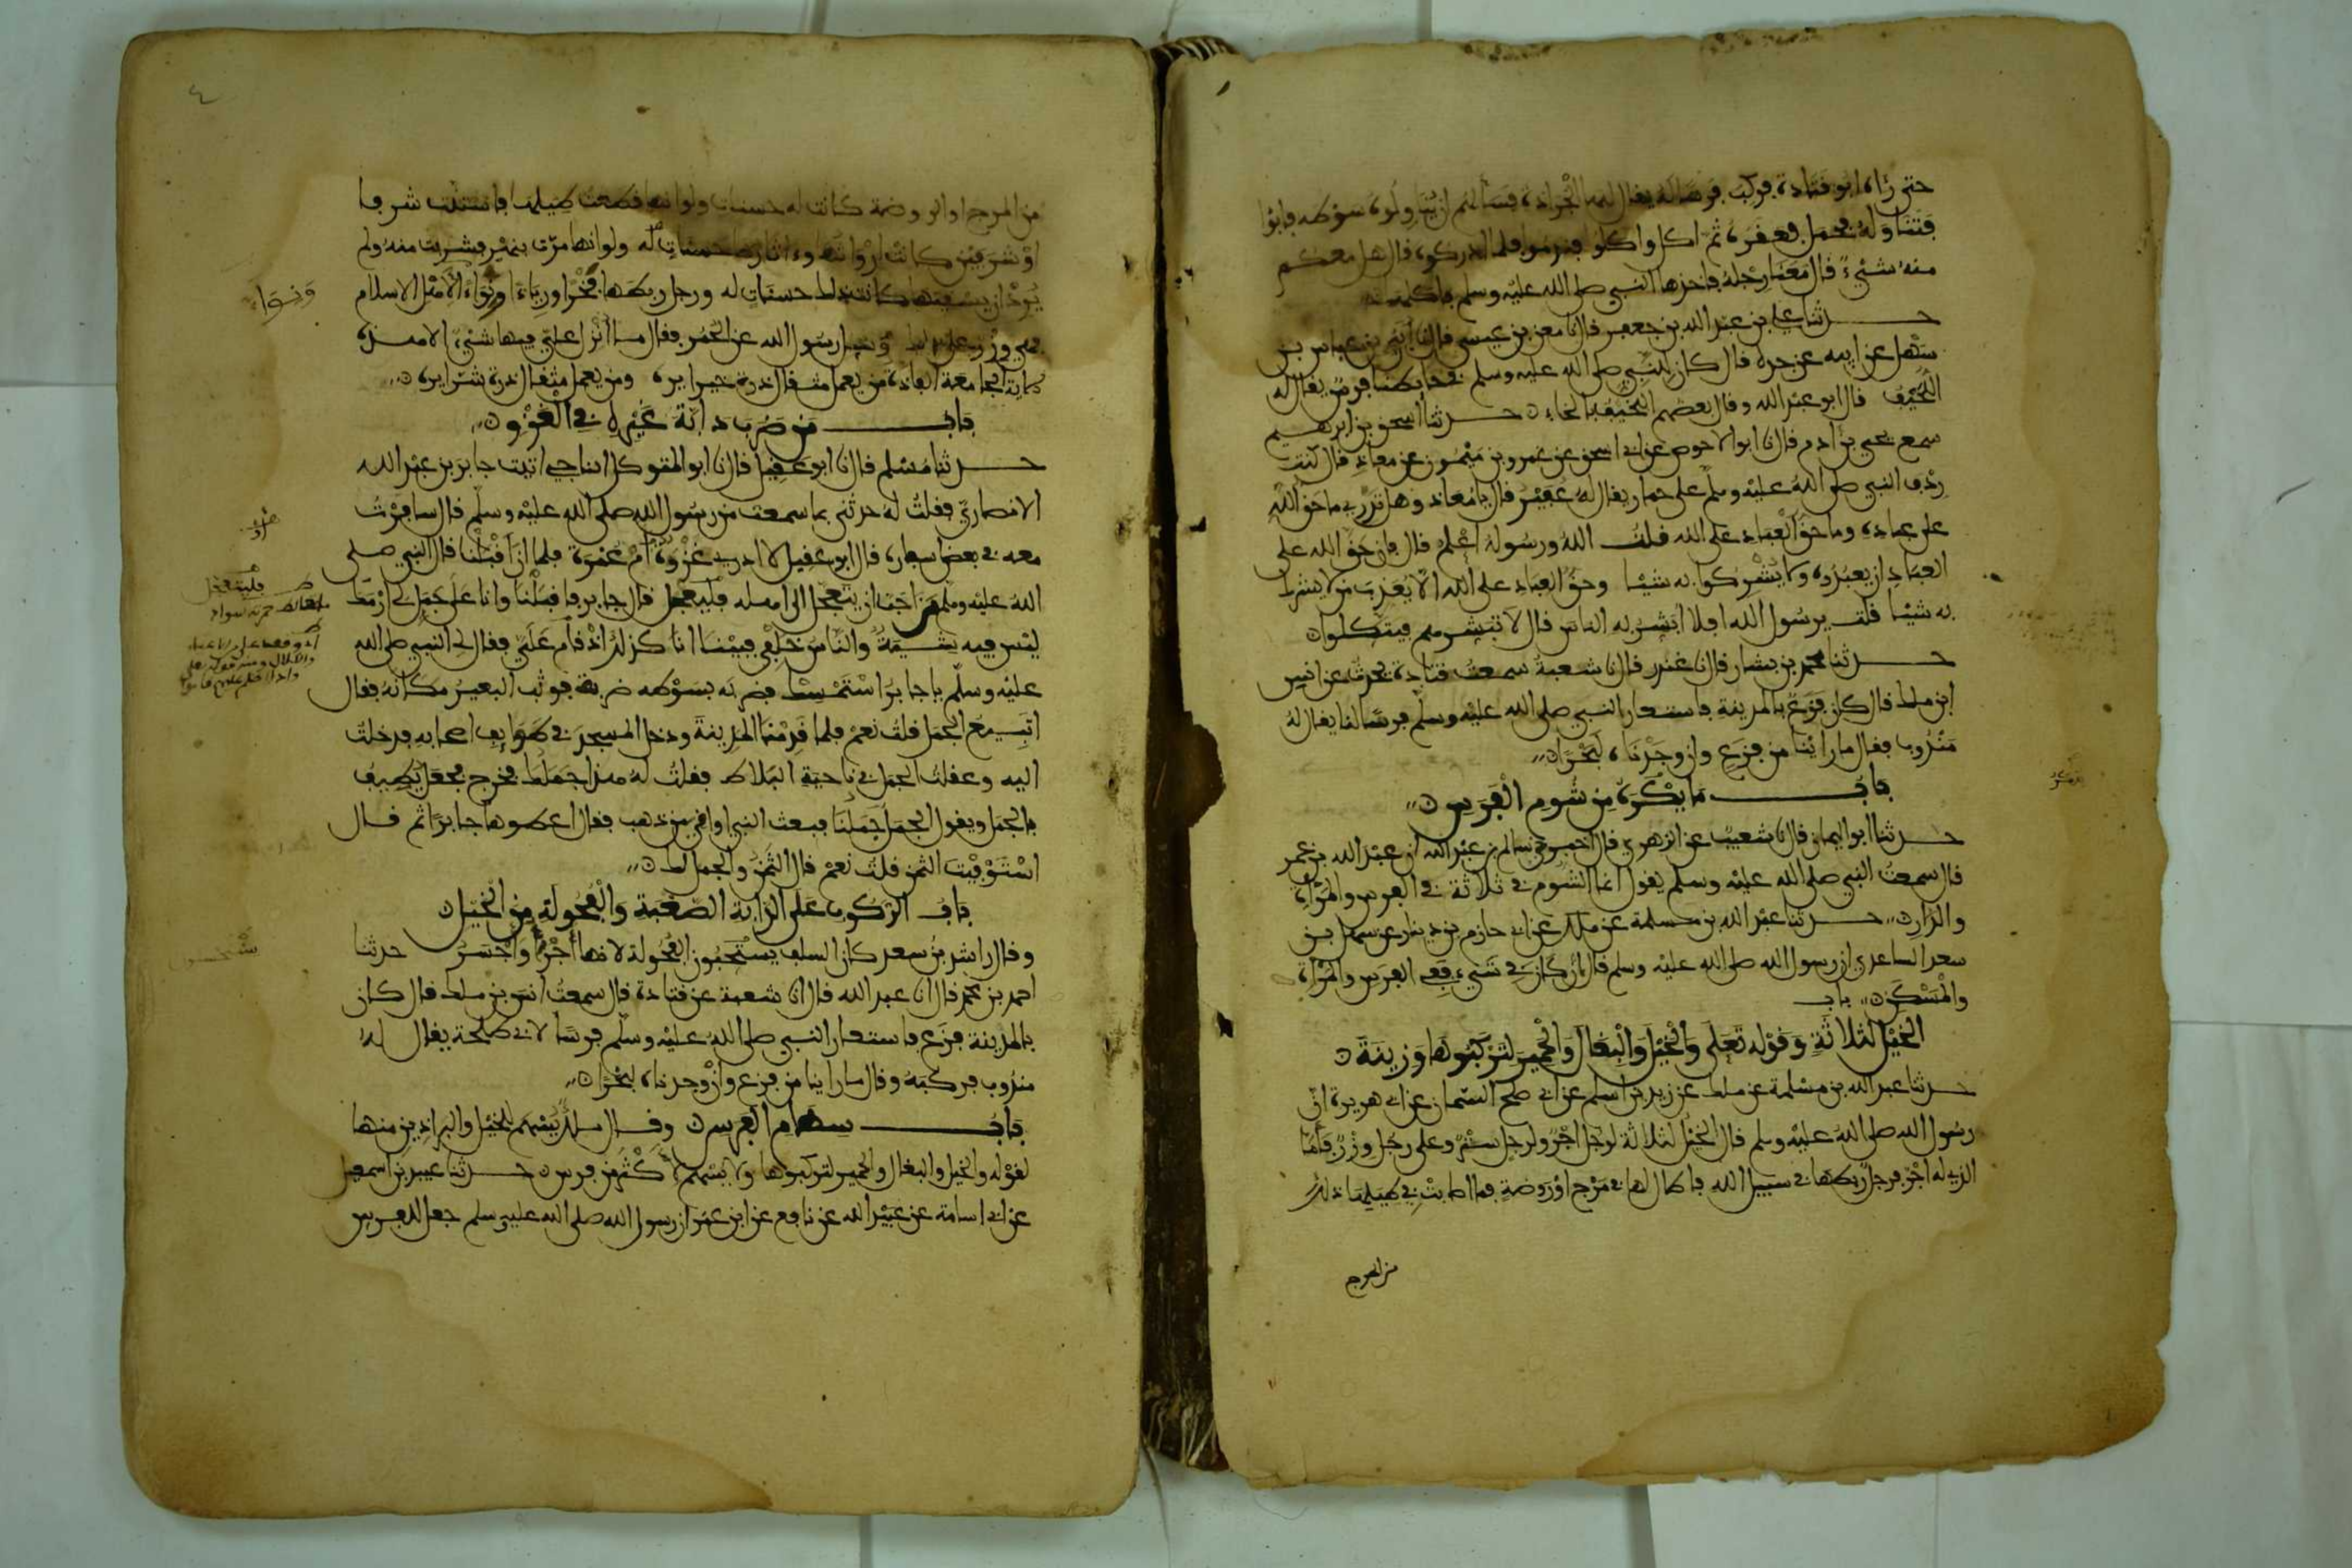 حتى رءاه ابو قتادة فركب فرسا له يقال لها الجرادة فسألهم ان يناولوه سوطه فابوا
فتناوله فحمل فعقره ثم اكل واكلوا فندموا فلما ادركوه قال هل معكم
منه شيء قال معنا رجله فاخذها النبي صلى الله عليه وسلم فاكلها
حدثنا علي بن عبد الله بن جعفر قال نا معن بن عيسى قال نا ابي بن عباس بن
سهل عن ابيه عن جده قال كان للنبي صلى الله عليه وسلم في حايطنا فرس يقال له
اللحيف قال ابو عبد الله وقال بعضهم اللخيف بالخاء حدثنا اسحق بن ابرهيم
سمع يحيى بن ادم قال نا ابو الاحوص عن ابي اسحق عن عمرو بن ميمون عن معاذ قال كنت
ردف النبي صلى الله عليه وسلم على حمار يقال له عفير فقال يا معاذ وهل تدري ما حق الله
على عباده وما حق العباد على الله قلت الله ورسوله اعلم قال فان حق الله على
العباد ان يعبدوه ولا يشركوا به شيئا وحق العباد على الله الا يعذب من لا يشرك
به شيئا قلت يرسول الله افلا ابشر به الناس قال لا تبشرهم فيتكلوا
حدثنا محمد بن بشار قال نا غندر قال نا شعبة سمعت قتادة يحدث عن انس
ابن ملك قال كان فزع بالمدينة فاستعار النبي صلى الله عليه وسلم فرسا لنا يقال له
مندوب فقال ما راينا من فزع وان وجدناه لبحرا
باب ما يذكر من شوم الفرس
يذكر
حدثنا ابو اليمان قال نا شعيب عن الزهري قال اخبرني سالم بن عبد الله ان عبد الله بن عمر
قال سمعت النبي صلى الله عليه وسلم يقول انما الشوم في ثلاثة في الفرس والمراة
والدار حدثنا عبد الله بن مسلمة عن ملك عن ابي حازم بن دينار عن سهل بن
سعد الساعدي ان رسول الله صلى الله عليه وسلم قال ان كان في شيء ففي الفرس والمراة
والمسكن باب
الخيل لثلاثة وقوله تعلى والخيل والبغال والحمير لتركبوها وزينة
حدثنا عبد الله بن مسلمة عن ملك عن زيد بن اسلم عن ابي صلح السمان عن ابي هريرة ان
رسول الله صلى الله عليه وسلم قال الخيل لثلاثة لرجل اجر ولرجل ستر وعلى رجل وزر فاما
الذي له اجر فرجل ربطها في سبيل الله فاطال لها في مرج او روضة فما اصابت في طيلها ذلك
من المرج
٤
من المرج او الروضة كانت له حسنات ولو انها قطعت طيلها فاستنت شرفا
او شرفين كانت ارواثها وءاثارها حسنات له ولو انها مرت بنهر فشربت منه ولم
يرد ان يسقيها كانت ذلك حسنات له ورجل ربطها فخرا ورياء ونواء لاهل الاسلام
ونواء
فهي وزر على ذلك وسيل رسول الله عن الحمر فقال ما انزل علي فيها شيء الا هذه
الاية الجامعة الفاذة من يعمل مثقال ذرة خيرا يره ومن يعمل مثقال ذرة شرا يره
باب من ضرب دابة غيره في الغزو
حدثنا مسلم قال نا ابو عقيل قال نا ابو المتوكل الناجي اتيت جابر بن عبد الله
الانصاري فقلت له حدثني بما سمعت من رسول الله صلى الله عليه وسلم قال سافرت
معه في بعض اسفاره قال ابو عقيل لا ادري غزوة ام عمرة فلما ان اقبلنا قال النبي صلى
الله عليه وسلم من احب ان يتعجل الى اهله فليعجل قال جابر فاقبلنا وانا على جمل لي ارمك
فليتعجل
ليس فيه شية والناس خلفي فبينا انا كذلك اذ قام علي فقال لي النبي صلى الله
عليه وسلم يا جابر استمسك فضربه بسوطه ضربة فوثب البعير مكانه فقال
اتبيع الجمل قلت نعم فلما قدمنا المدينة ودخل المسجد في طوايف اصحابه فدخلت
اليه وعقلت الجمل في ناحية البلاط فقلت له هذا جملك فخرج فجعل يطيف
بالجمل ويقول الجمل جملنا فبعث النبي اواقي من ذهب فقال اعطوها جابرا ثم قال
استوفيت الثمن قلت نعم قال الثمن والجمل لك
باب الركوب على الدابة الصعبة والفحولة من الخيل
وقال راشد بن سعد كان السلف يستحبون الفحولة لانها اجرأ واجسر حدثنا
احمد بن محمد قال نا عبد الله قال نا شعبة عن قتادة قال سمعت انس بن ملك قال كان
بالمدينة فزع فاستعار النبي صلى الله عليه وسلم فرسا لابي طلحة يقال له
مندوب فركبه وقال ما راينا من فزع وان وجدناه لبحرا
باب سهام الفرس وقال ملك يسهم للخيل والبراذين منها
لقوله والخيل والبغال والحمير لتركبوها ولا يسهم لاكثر من فرس حدثنا عبيد بن اسمعيل
عن ابي اسامة عن عبيد الله عن نافع عن ابن عمر ان رسول الله صلى الله عليه وسلم جعل للفرس